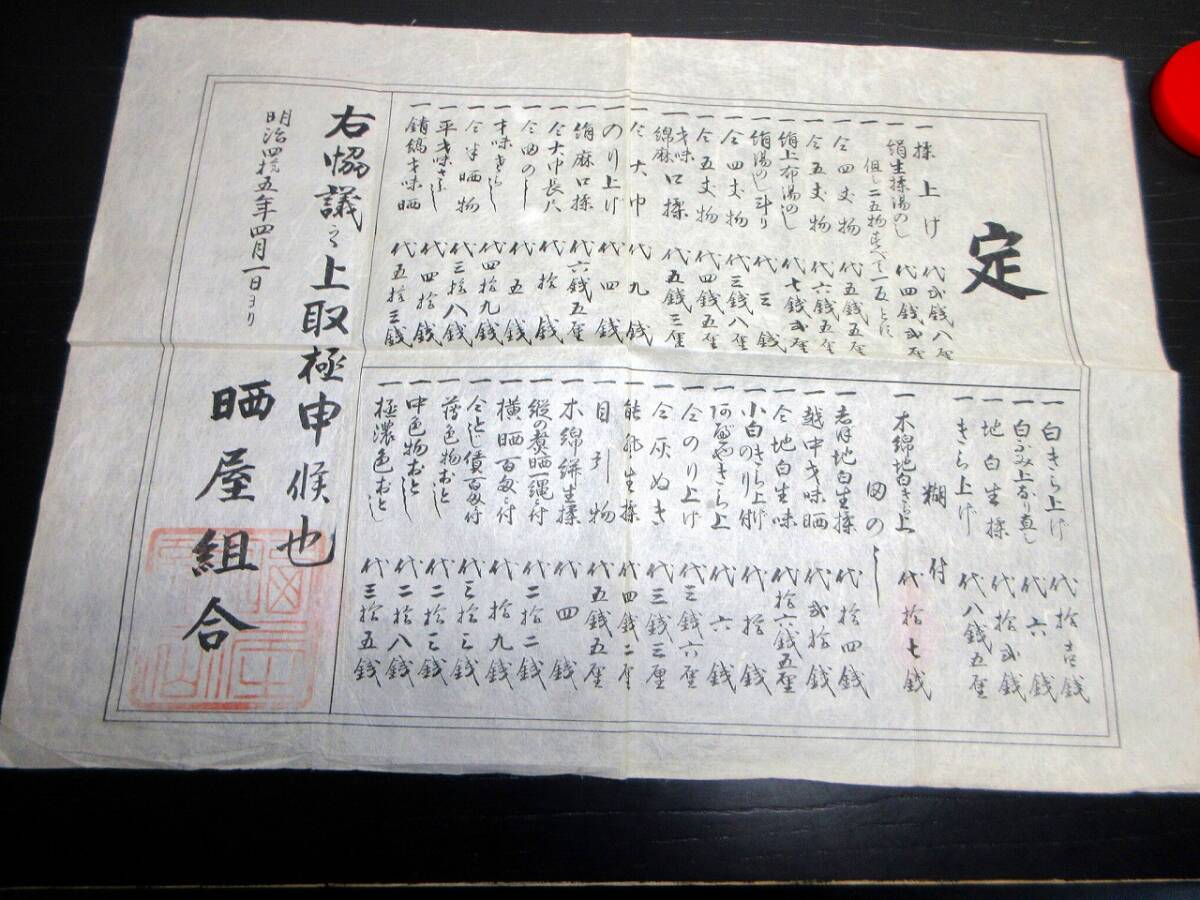 定
一 揉上げ 代弐銭八厘
一 絹生揉湯のし 代四銭弐厘
一 但し二五物すべて一五とに
一 仝四丈物 代五銭五厘
一 仝五丈物 代六銭五厘
一 絹上布湯のし 代七銭弐厘
一 絹湯のし斗り 代三銭
一 仝四丈物 代三銭八厘
一 仝五丈物 代四銭五厘
一 才味綿麻口揉 代五銭三厘
一 仝大巾 代九銭
一 のり上げ 代四銭
一 絹麻口揉 代六銭五厘
一 仝大巾長尺 代拾銭
一 仝田のし 代五銭
一 才味きらし 代四拾九銭
一 仝半晒物 代三拾八銭
一 平才味さらし 代四拾銭
一 銚縞才味晒 代五拾三銭
一 白きら上げ 代拾壱銭
一 白かみ上なり直し 代六銭
一 地白生揉 代拾弐銭
一 きら上げ 代八銭五厘
糊付
一 木綿地白きら上 代拾七銭
田のし
一 志ほ地白生揉 代拾四銭
一 越中才味晒 代弐拾銭
一 仝地白生味 代拾六銭五厘
一 小白きら上げのり付 代拾銭
一 きら上 代六銭
一 仝のり上げ 代三銭六厘
一 仝灰ぬき 代三銭三厘
一 能登生揉 代四銭二厘
一 目引物 代五銭五厘
一 木綿絣生揉 代四銭
一 縦の煮晒一縄ニ付 代二拾二銭
一 横晒百匁ニ付 代拾九銭
一 仝とじ賃百匁ニ付 代三拾三銭
一 薄色物おとし 代二拾三銭
一 中色物おとし 代二拾八銭
一 極濃色おとし 代三拾五銭
右協議之上取極申候也
明治四拾五年四月一日ヨリ
晒屋組合